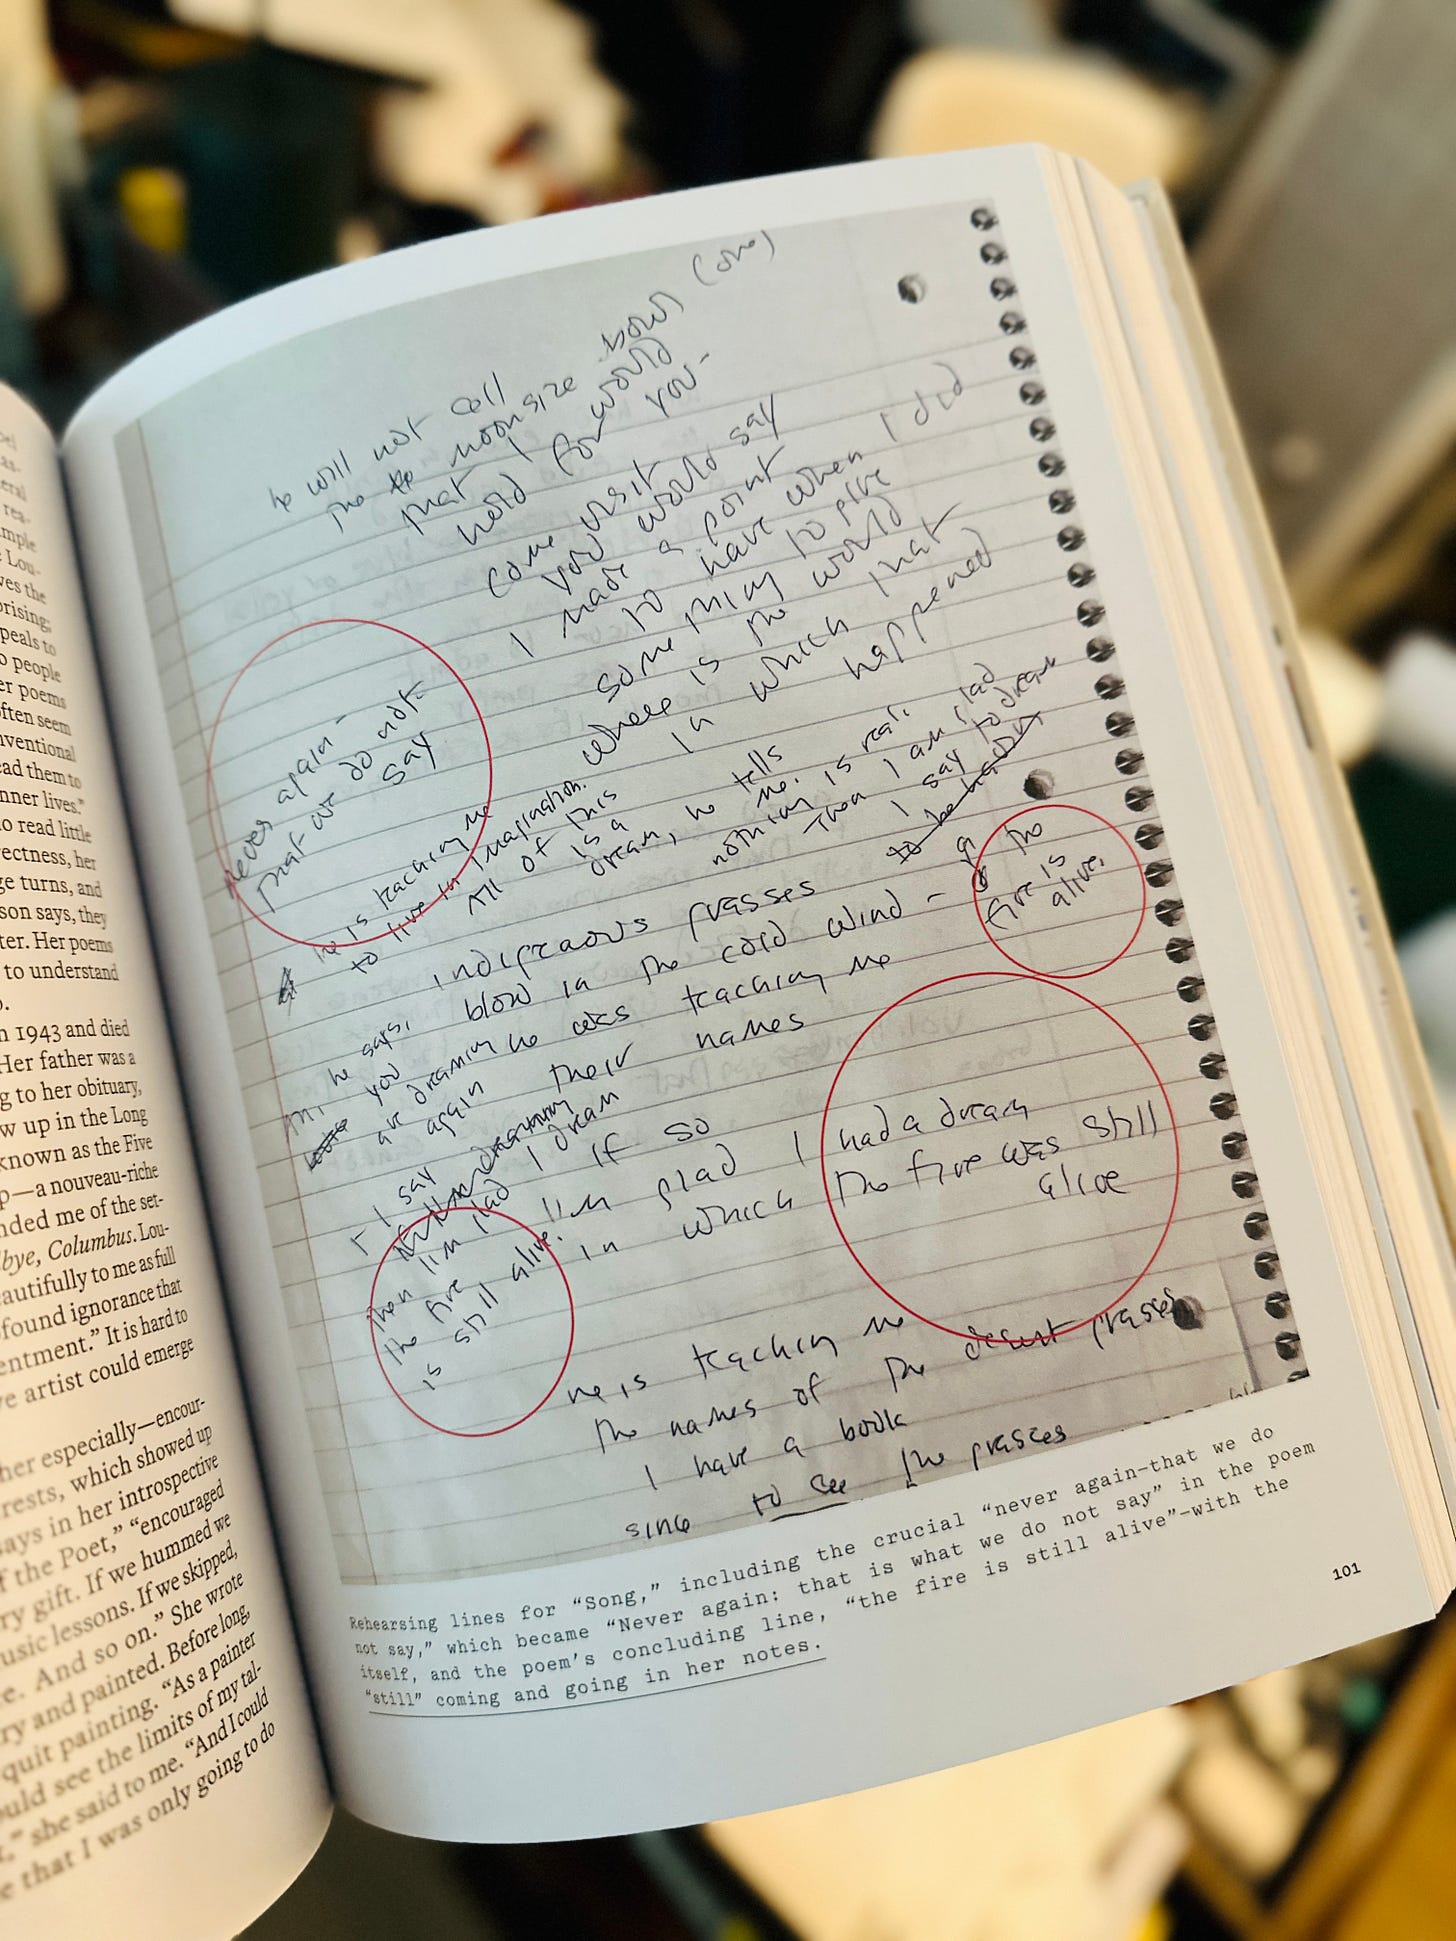 bel
as-
eral
rea-
imple
e Lou-
ves the
orising;
peals to
o people
er poems
often seem
nventional
ead them to
nner lives."
o read little
rectness, her
ge turns, and
son says, they
ter. Her poems
to understand
o.
n 1943 and died
Her father was a
g to her obituary,
w up in the Long
known as the Five
p—a nouveau-riche
nded me of the set-
bye, Columbus. Lou-
eautifully to me as full
found ignorance that
entment." It is hard to
ve artist could emerge
her especially—encour-
rests, which showed up
says in her introspective
f the Poet," "encouraged
ry gift. If we hummed we
usic lessons. If we skipped,
e. And so on." She wrote
ry and painted. Before long,
quit painting. "As a painter
ould see the limits of my tal-
," she said to me. "And I could
e that I was only going to do
he will not sell
me the moonsize bowl (one)
that I would
hold for you-
come visit
you would say
I made a point
to have when I did
something to give
where is the world
in which that
happened
never again-
that we do not
say
he is teaching me
to live in imagination.
All of this
is a
dream, he tells
me. nothing is real.
Then I am glad
I say to dream
to be
the
fire is
alive.
indigenous grasses
blow in the cold wind -
he was teaching me
again their names
he says,
you
are dreaming
I say
I dream
then I'm glad
the fire
is still alive.
If so
I'm glad I had a dream
in which the fire was still
alive
he is teaching me
the names of the desert grasses
I have a book
since to see the grasses
Rehearsing lines for "Song," including the crucial "never again—that we do
not say," which became "Never again: that is what we do not say" in the poem
itself, and the poem's concluding line, "the fire is still alive"—with the
"still" coming and going in her notes.
101